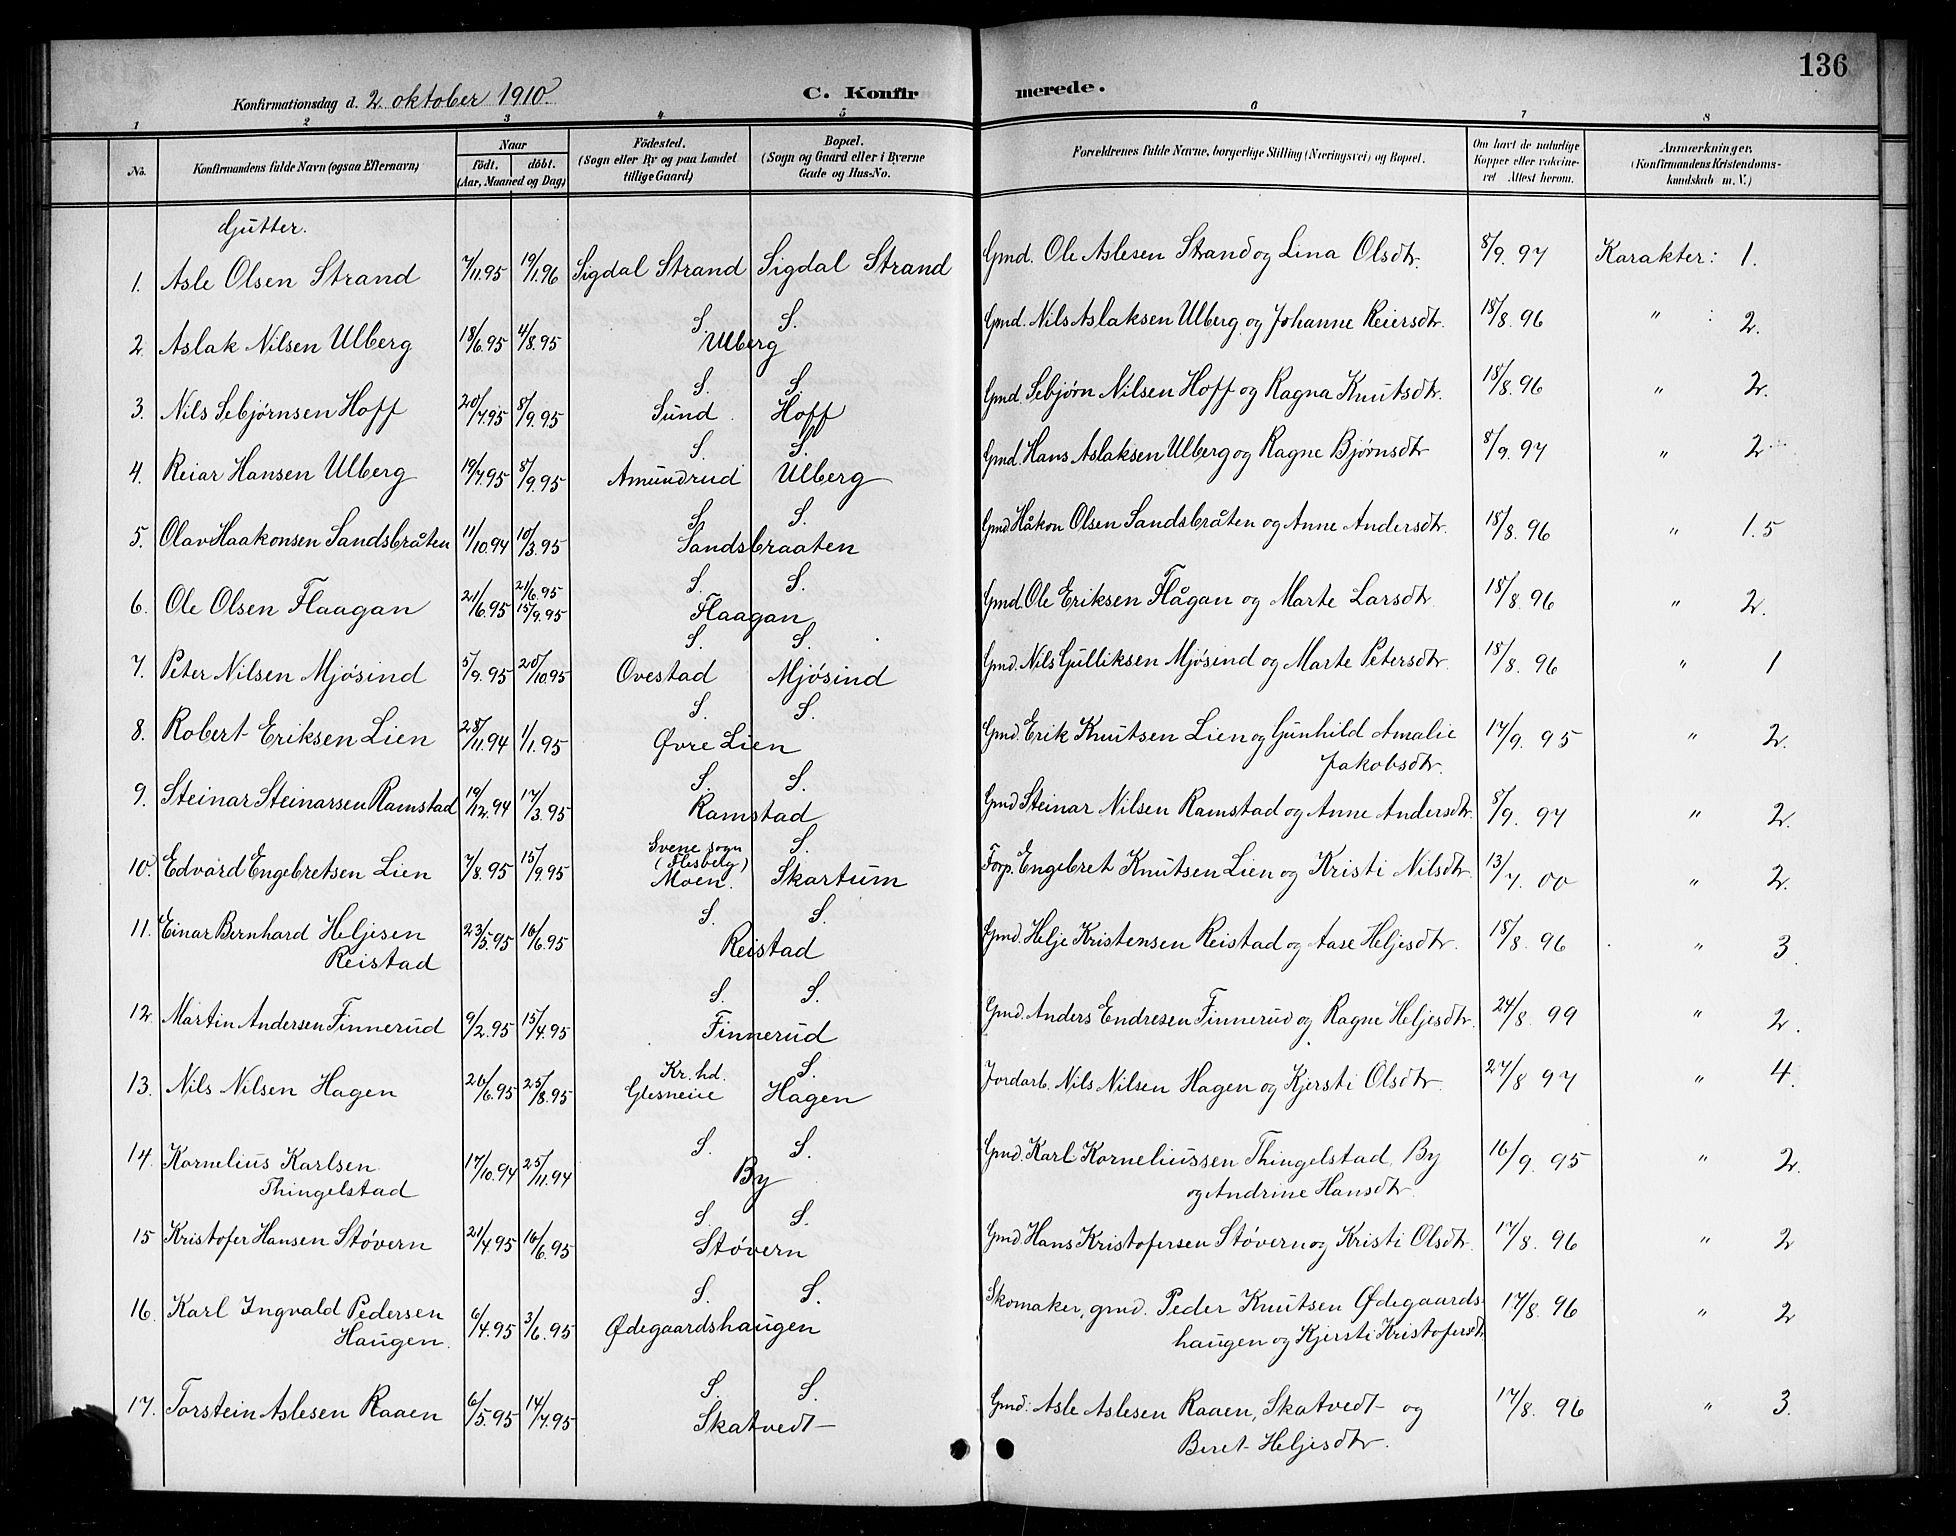 136
Konfirmationsdag d. 2 oktober 1910. C. Konfirmerede.
1 2 3 4 5 6 7 8
No. Konfirmandens fulde Navn (ogsaa Efternavn) Naar födt. döbt. (Aar, Maaned og Dag) Födested. (Sogn eller By og paa Landet tillige Gaard) Bopæl. (Sogn og Gaard eller i Byerne Gade og Hus-No. Forældrenes fulde Navne, borgerlige Stilling (Næringsvei) og Bopæl. Om havt de naturlige Kopper eller vakcineret Attest herom. Anmærkninger, (Konfirmandens Kristendomskundskab m. V.)
Gutter.
1. Asle Olsen Strand 7/11.95 19/1.96 Sigdal Strand Sigdal Strand Gmd. Ole Aslesen Strand og Lina Olsdtr. 8/9. 97 Karakter: 1.
2. Aslak Nilsen Ulberg 18/6.95 4/8.95 S. S. Ulberg Gmd. Nils Aslaksen Ulberg og Johanne Reiersdtr. 18/8. 96 " : 2.
3. Nils Sebjørnsen Hoff 20/7.95 8/9.95 S. Sund S. Hoff Gmd. Sebjørn Nilsen Hoff og Ragna Knutsdtr. 18/8. 96 " 2.
4. Reiar Hansen Ulberg 19/7.95 8/9.95 S. Amundrud S. Ulberg Gmd. Hans Aslaksen Ulberg og Ragne Bjørnsdtr 8/9. 97 " 2
5. Olav Haakonsen Sandsbråten 11/10.94 10/3.95 S. S. Sandsbraaten Gmd Håkon Olsen Sandsbråten og Anne Andersdtr. 18/8. 96 " 1.5
6. Ole Olsen Flaagan 21/6.95 21/6.95 15/9.95 S. S. Flaagan Gmd. Ole Eriksen Flågan og Marte Larsdtr. 18/8. 96 " 2.
7. Peter Nilsen Mjøsind 5/9.95 20/10.95 S. Ovestad S. Mjøsind Gmd. Nils Gulliksen Mjøsind og Marte Petersdtr. 18/8. 96 " 1
8. Robert Eriksen Lien 28/11.94 1/1.95 S. S. Øvre Lien Gmd. Erik Knutsen Lien og Gunhild Amalie
Jakobsdtr. 17/9. 95 " 2.
9. Steinar Steinarssen Ramstad 19/12.94 17/3.95 S. S. Ramstad Gmd Steinar Nilsen Ramstad og Anne Andersdtr. 8/9. 97 " 2.
10. Edvard Engebretsen Lien 7/8.95 15/9.95 Svene sogn (Flesberg) Moen. S. Skartum Forp. Engebret Knutsen Lien og Kristi Nilsdtr. 13/7. 00 " 2.
11. Einar Bernhard Heljesen
Reistad 23/5.95 16/6.95 S. S. Reistad Gmd. Helje Kristensen Reistad og Aase Heljesdtr. 18/8. 96 " 3.
12. Martin Andersen Finnerud 9/2.95 15/4.95 S. S. Finnerud Gmd. Anders Endresen Finnerud og Ragne Heljesdtr. 24/8. 99 " 2.
13. Nils Nilsen Hagen 26/6.95 25/8.95 Kr.hd. Glesneie S. Hagen Jordarb. Nils Nilsen Hagen og Kjersti Olsdtr. 27/8 97 " 4.
14. Kornelius Karlsen
Thingelstad 17/10.94 25/11.94 S. S. By Gmd. Karl Korneliussen Thingelstad, By
og Andrine Hansdtr. 16/9. 95 " 2.
15 Kristofer Hansen Støvern 21/4.95 16/6.95 S. S. Støvern Gmd. Hans Kristofersen Støvern og Kristi Olsdtr. 17/8. 96 " 2
16. Karl Ingvald Pedersen
Haugen. 6/4.95 3/6.95 S. S. Ødegaardshaugen Skomaker, gmd. Peder Knutsen Ødegaards-
haugen og Kjersti Kristofersdtr. 17/8. 96 " 2
17. Torstein Aslesen Raaen 6/5.95 14/7.95 S. S. Skatvedt Gmd: Asle Aslesen Raaen, Skatvedt og
Beret Heljesdtr. 17/8. 96 " 3.